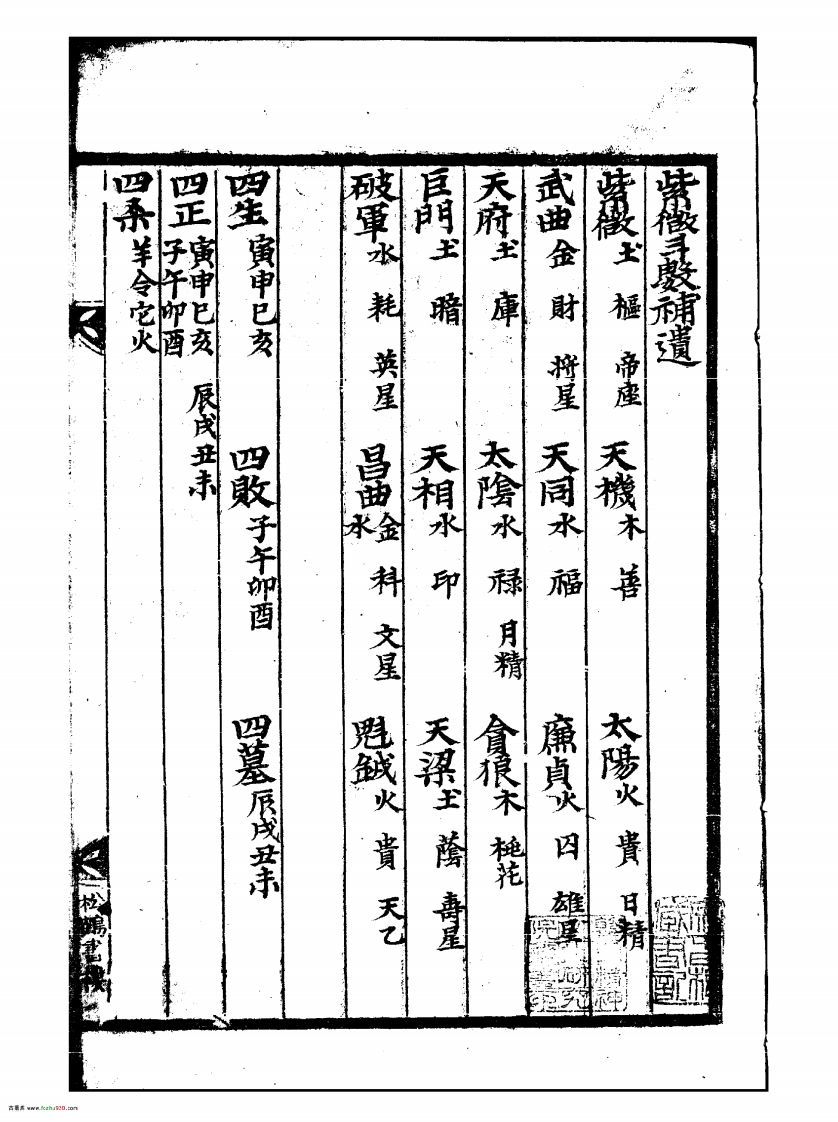 紫微斗數補遺
紫微土 樞 帝座 天機木 善 太陽火 貴 日精
武曲金 財 將星 天同水 福 廉貞火 囚 雄星
天府土 庫 太陰水 禄 月精 貪狼木 桃花
巨門土 暗 天相水 印 天梁土 蔭 壽星
破軍水 耗 英星 昌曲金水 科 文星 魁鉞火 貴 天乙
四生 寅申巳亥 四敗 子午卯酉 四墓 辰戌丑未
四正 寅申巳亥 子午卯酉 辰戌丑未
四杀 羊令它火
松鶴書樓
古易库 www.fozhu920.com